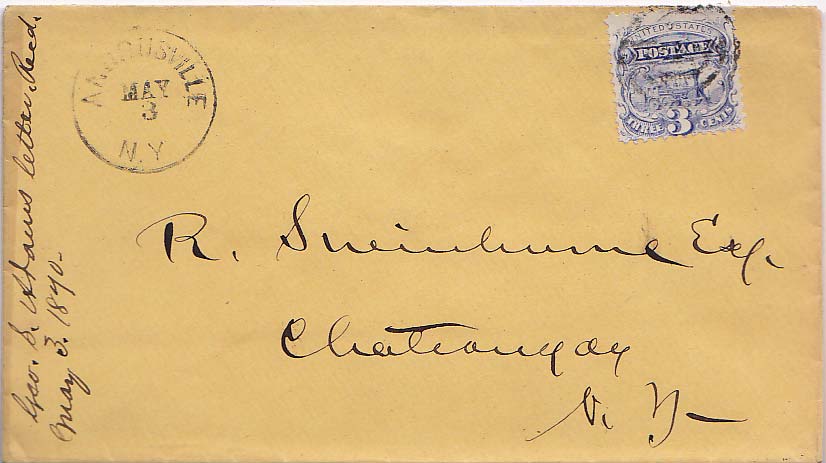 ANDRUSVILLE
MAY
3
N.Y
UNITED STATES
POSTAGE
THREE 3 CENTS
R. Esq.
Chateaugay
N. Y.
Geo. S. Adams letter, Recd.
May 3. 1870-